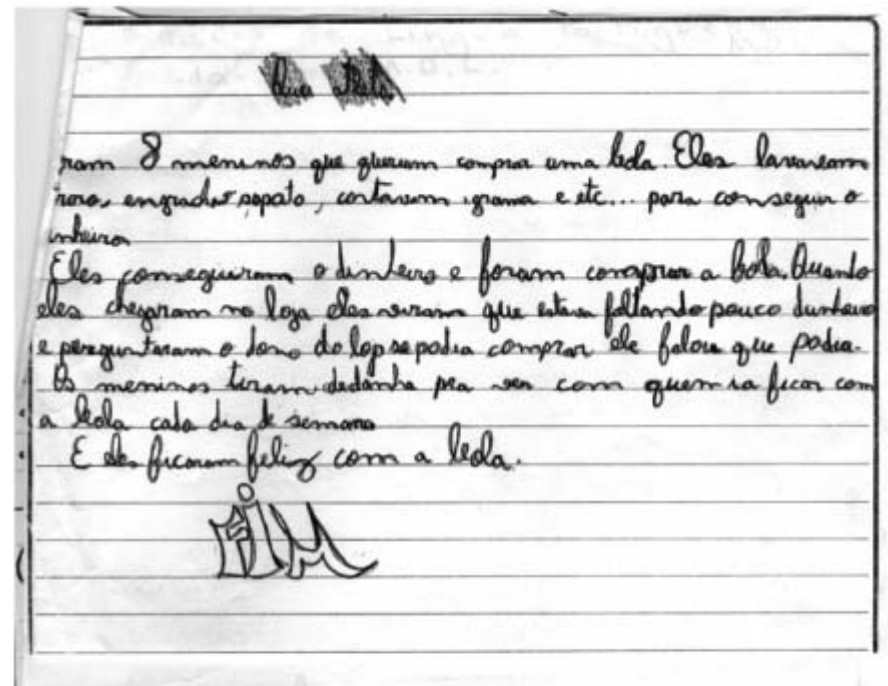 ram 8 meninos que queriam comprar uma bola. Eles lavavam
engrachar sapato, cortavam grama e etc... para conseguir o
inheiro
Eles conseguiram o dinheiro e foram comprar a bola. Quando
eles chegaram no loja eles viram que estava faltando pouco dinheiro
e perguntaram o dono da loja se podia comprar ele falou que podia.
Os meninos tiram dedanha pra ver com quem ia ficar com
a bola cada dia de semana
E eles ficaram feliz com a bola.
FIM